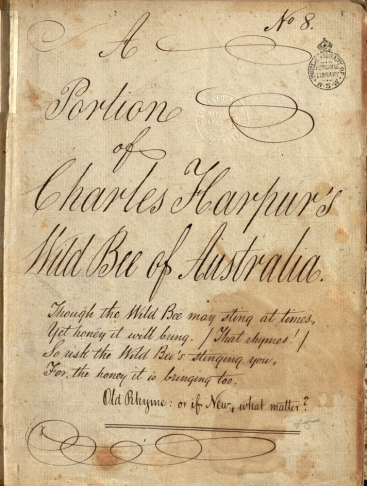 No 8.
A
Portion
of
Charles Harpur's
Wild Bee of Australia.
Though the Wild Bee may sting at times,
Yet honey it will bring. / That rhymes! /
So risk the Wild Bee's stinging you,
For the honey it is bringing too.
Old Rhyme: or if New, what matter?